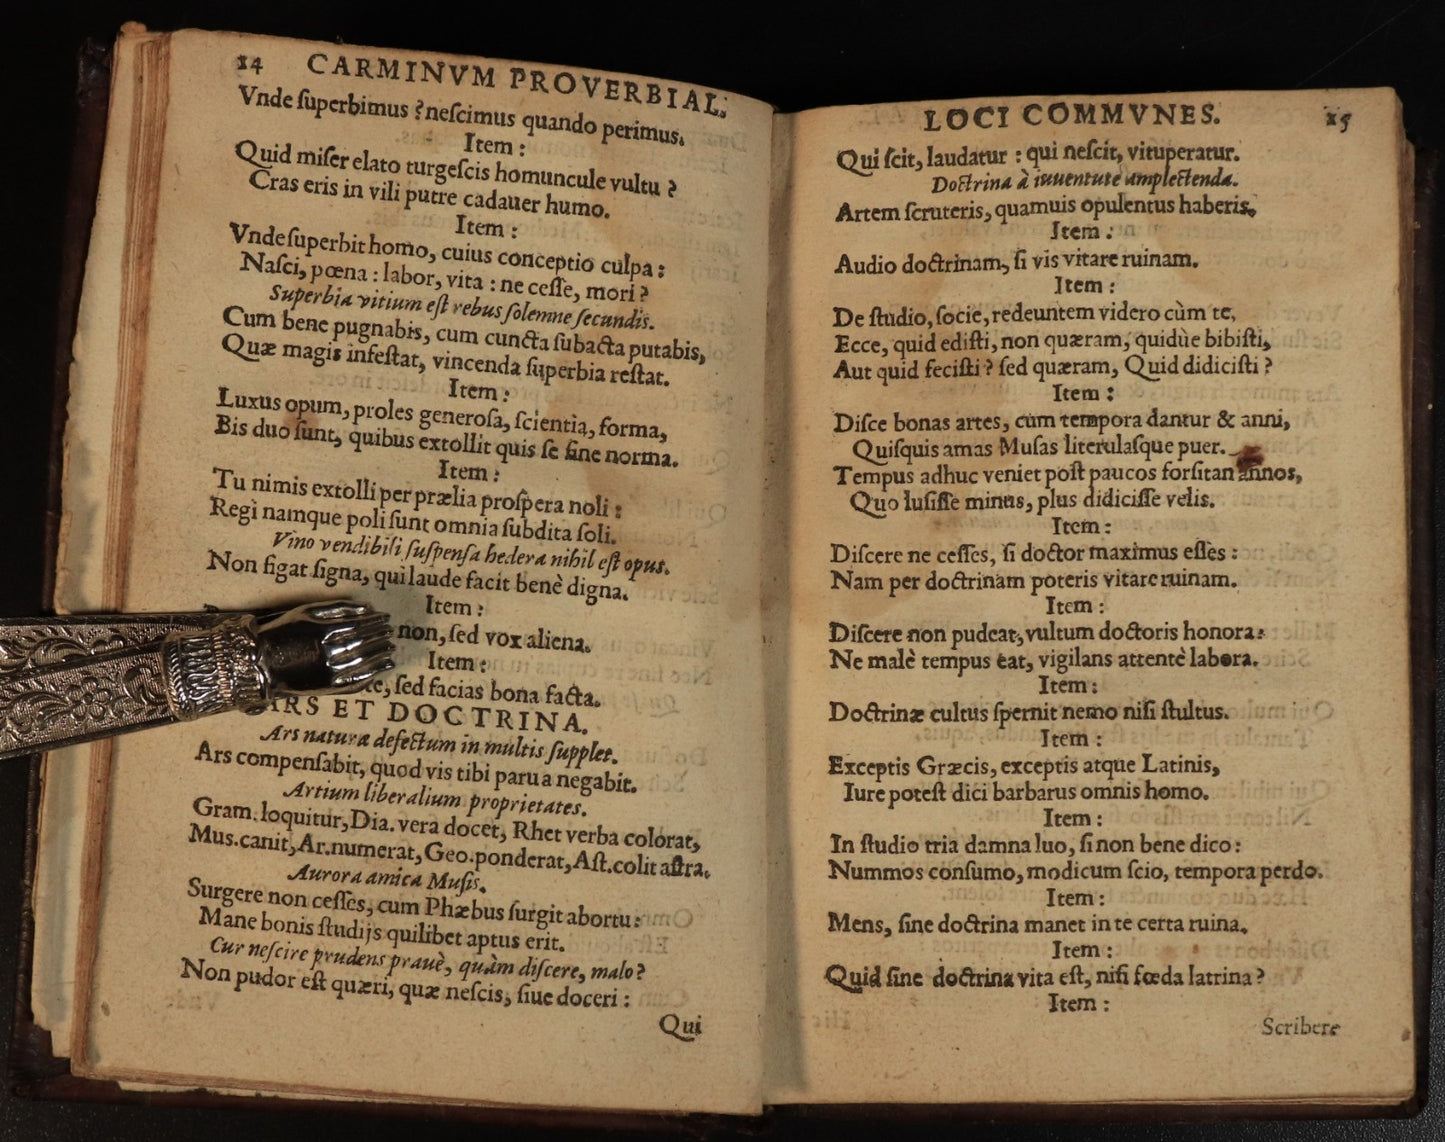 14 CARMINVM PROVERBIAL.
Vnde ſuperbimus ? neſcimus quando perimus.
Item :
Quid miſer elato turgeſcis homuncule vultu ?
Cras eris in vili putre cadauer humo.
Item :
Vnde ſuperbit homo, cuius conceptio culpa :
Naſci, pœna : labor, vita : neceſſe, mori ?
Superbia vitium eſt rebus ſolemne ſecundis.
Cum bene pugnabis, cum cuncta ſubacta putabis,
Quæ magis infeſtat, vincenda ſuperbia reſtat.
Item :
Luxus opum, proles generoſa, ſcientia, forma,
Bis duo ſunt, quibus extollit quis ſe ſine norma.
Item :
Tu nimis extolli per prælia proſpera noli :
Regi namque poli ſunt omnia ſubdita ſoli.
Vino vendibili ſuſpenſa hedera nihil eſt opus.
Non figat ſigna, qui laude facit benè digna.
Item :
non, ſed vox aliena.
Item :
ſed facias bona facta.
ARS ET DOCTRINA.
Ars naturæ defectum in multis ſupplet.
Ars compenſabit, quod vis tibi parua negabit.
Artium liberalium proprietates.
Gram. loquitur, Dia. vera docet, Rhet verba colorat,
Mus. canit, Ar. numerat, Geo. ponderat, Aſt. colit aſtra.
Aurora amica Muſis.
Surgere non ceſſes, cum Phæbus ſurgit abortu :
Mane bonis ſtudijs quilibet aptus erit.
Cur neſcire prudens prauè, quàm diſcere, malo ?
Non pudor eſt quæri, quæ neſcis, ſiue doceri :
Qui
LOCI COMMVNES. 15
Qui ſcit, laudatur : qui neſcit, vituperatur.
Doctrina à iuuentute amplectenda.
Artem ſcruteris, quamuis opulentus haberis,
Item :
Audio doctrinam, ſi vis vitare ruinam.
Item :
De ſtudio, ſocie, redeuntem videro cùm te,
Ecce, quid ediſti, non quæram, quidùe bibiſti,
Aut quid feciſti ? ſed quæram, Quid didiciſti ?
Item :
Diſce bonas artes, cùm tempora dantur & anni,
Quiſquis amas Muſas literulaſque puer.
Tempus adhuc veniet poſt paucos forſitan annos,
Quo luſiſſe minus, plus didiciſſe velis.
Item :
Diſcere ne ceſſes, ſi doctor maximus eſſes :
Nam per doctrinam poteris vitare ruinam.
Item :
Diſcere non pudeat, vultum doctoris honora :
Ne malè tempus eat, vigilans attentè labora.
Item :
Doctrinæ cultus ſpernit nemo niſi ſtultus.
Item :
Exceptis Græcis, exceptis atque Latinis,
Iure poteſt dici barbarus omnis homo.
Item :
In ſtudio tria damna luo, ſi non bene dico :
Nummos conſumo, modicum ſcio, tempora perdo.
Item :
Mens, ſine doctrina manet in te certa ruina.
Item :
Quid ſine doctrina vita eſt, niſi fœda latrina ?
Item :
Scribere